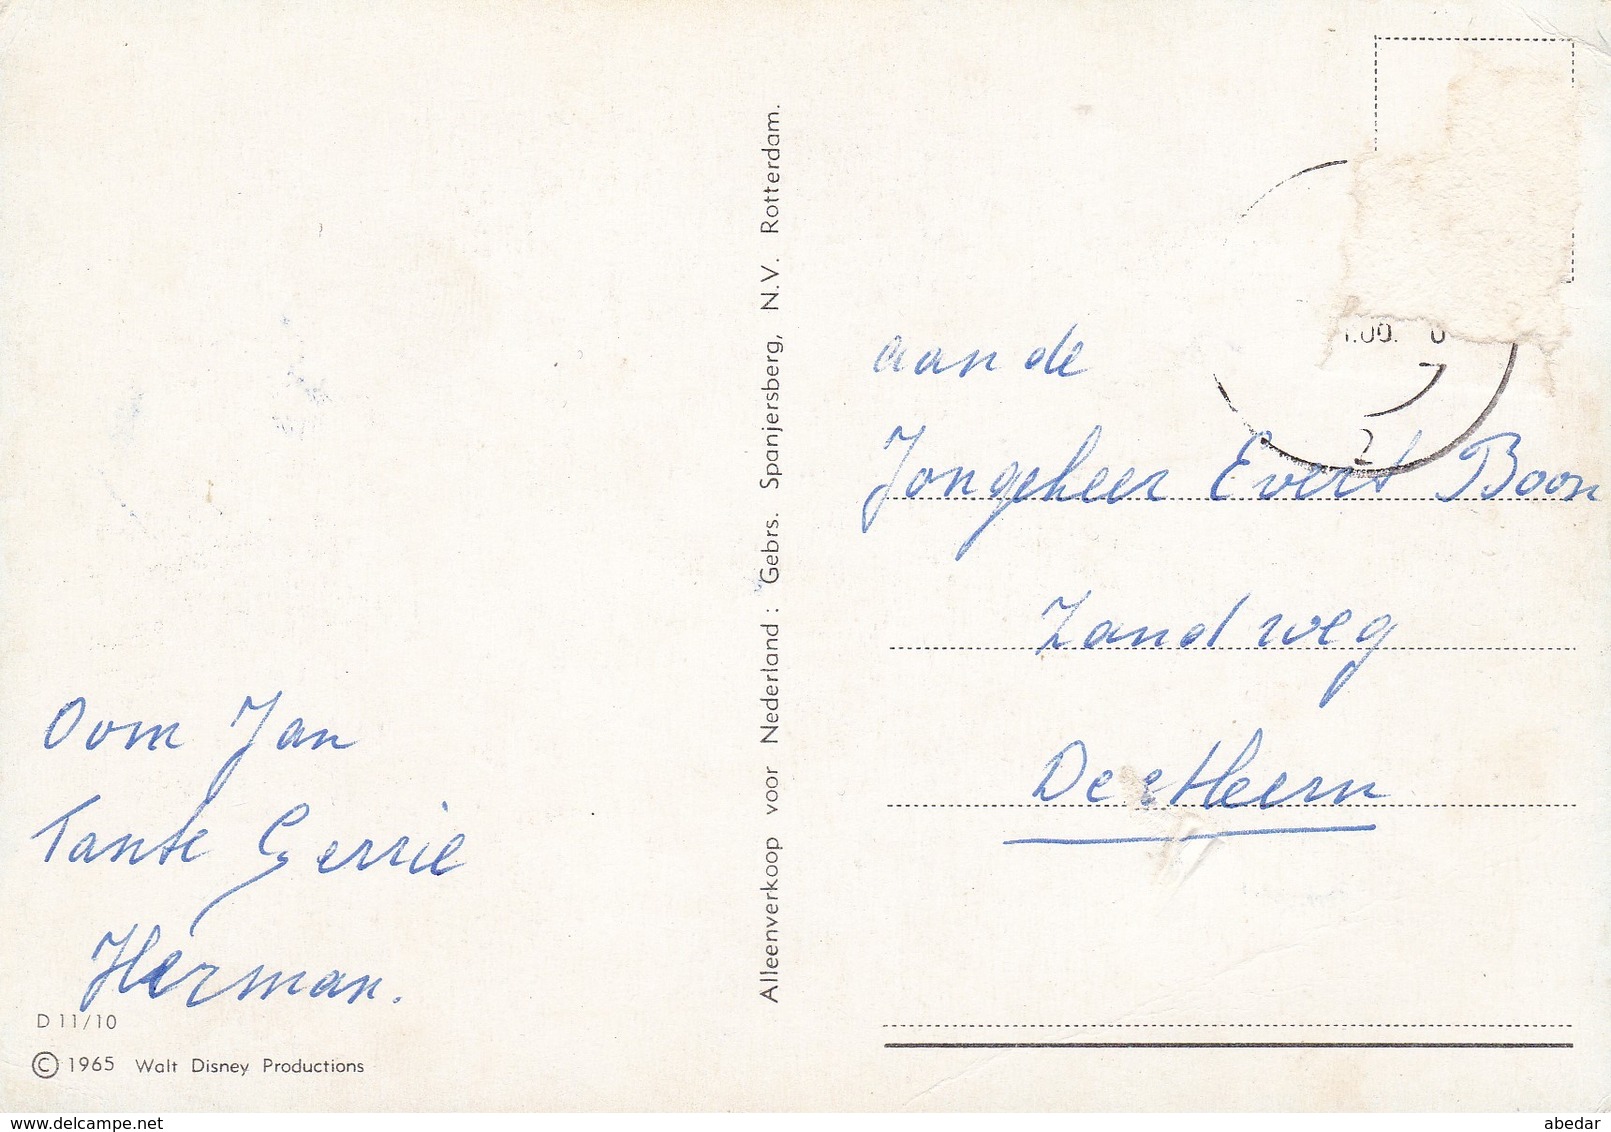 Oom Jan
Tante Gerrie
Herman.
D 11/10
© 1965 Walt Disney Productions
Alleenverkoop voor Nederland : Gebrs. Spanjersberg, N.V. Rotterdam.
2
aan de
Jongeheer Evert Boon
Zandweg
Oostkapelle
www.delcampe.net
abedar